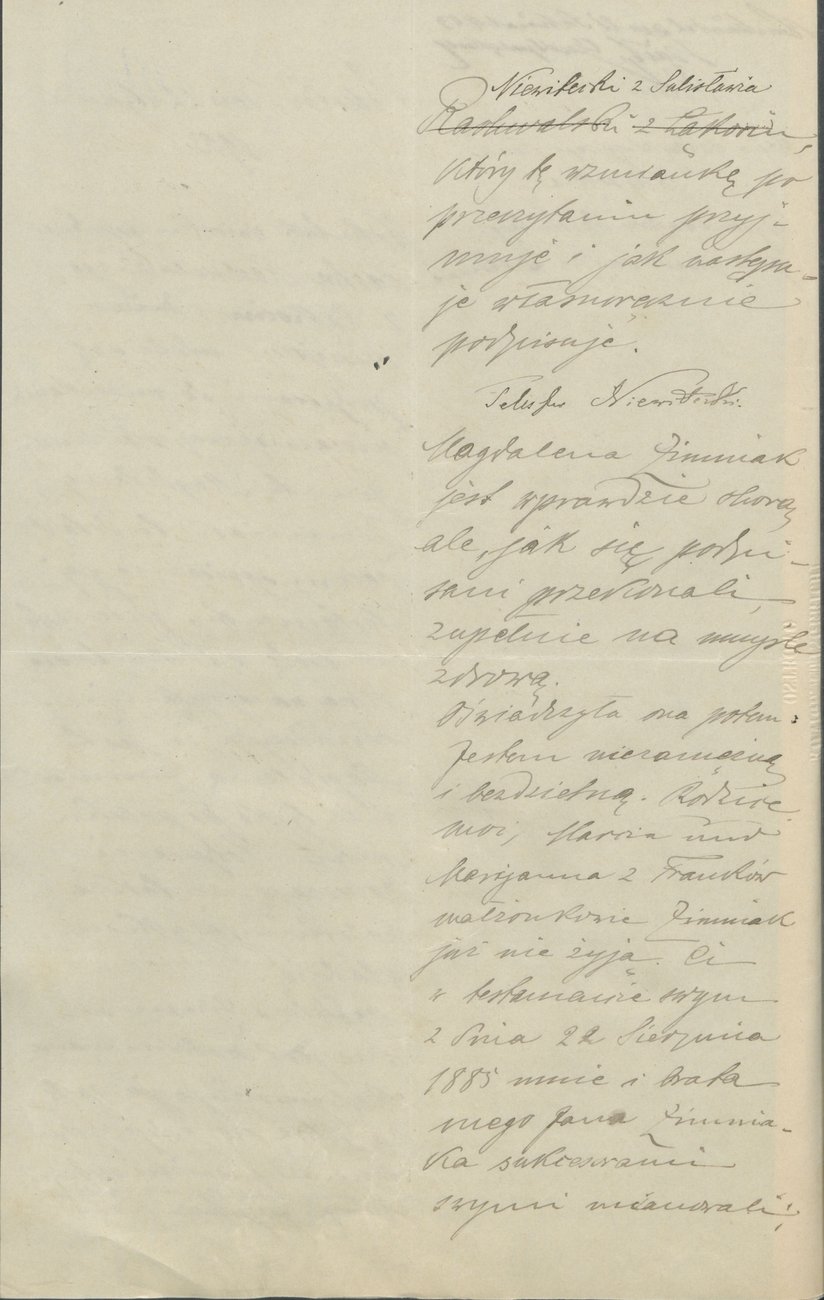 Niewitecki z Sulisławia
Raslewalski z Lakocin,
który tę wzmiankę po
przeczytaniu przyj-
muje i jak następu-
je własnoręcznie
podpisuje.
Niewitecki.
Magdalena Zimniak
jest wprawdzie chorą,
ale, jak się podpi-
sani przekonali,
zupełnie na umyśle
zdrową.
Oświadczyła ona potem:
Jestem niezamężną
i bezdzietną. Rodzice
moi, Marcin und
Maryanna z Franków
małżonkowie Zimniak
już nie żyją. Ci
w testamencie swym
z dnia 22 Sierpnia
1885 mnie i brata
mego Jana Zimnia-
ka sukcesorami
swymi mianowali;